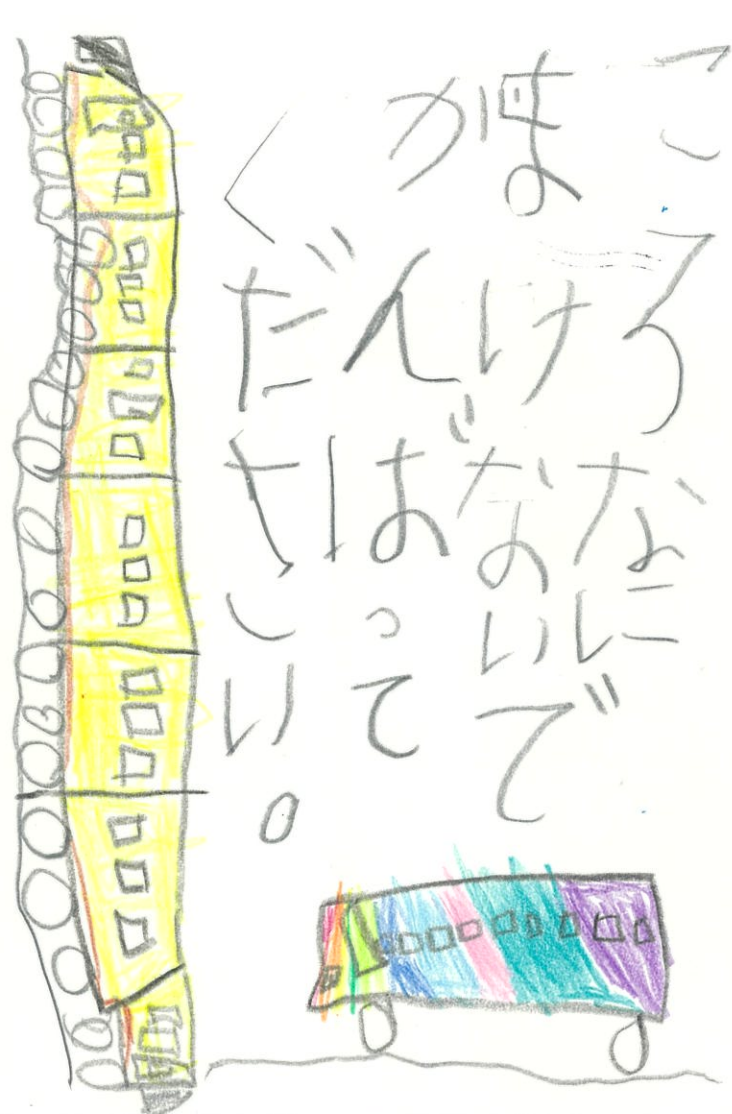 ころなに
まけないで
がんばって
ください。